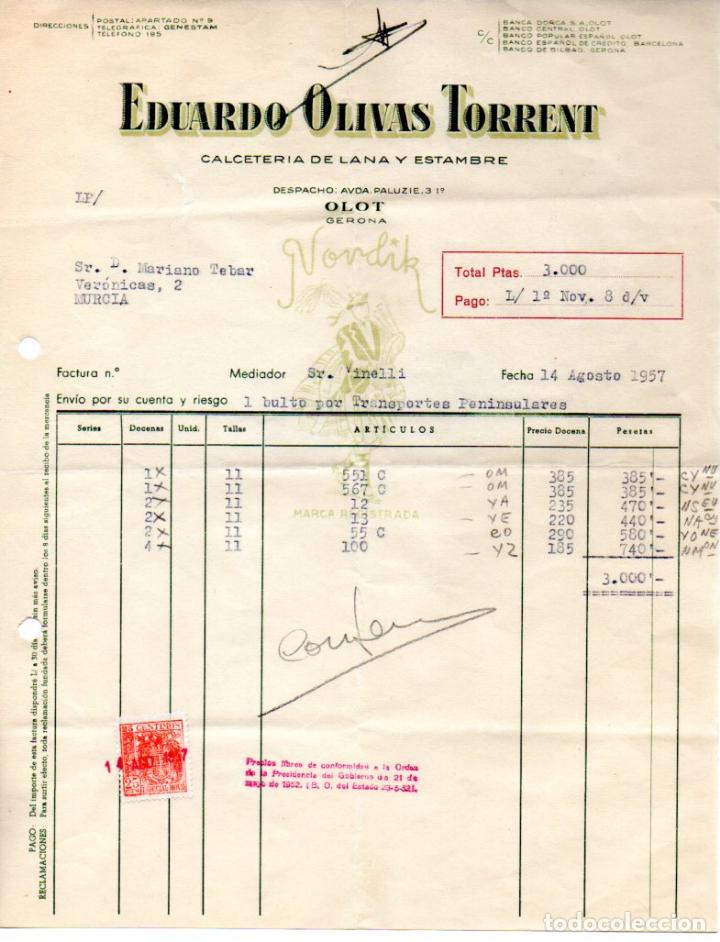 DIRECCIONES
POSTAL: APARTADO Nº 9
TELEGRAFICA: GENESTAM
TELEFONO 195
C/C
BANCA DORCA S.A. OLOT
BANCO CENTRAL. OLOT
BANCO POPULAR ESPAÑOL. OLOT
BANCO ESPAÑOL DE CREDITO. BARCELONA
BANCO DE BILBAO. GERONA
EDUARDO OLIVAS TORRENT
CALCETERIA DE LANA Y ESTAMBRE
DESPACHO: AVDA. PALUZIE, 3 1º
OLOT
GERONA
LP/
Nordik
Sr. D. Mariano Tebar
Verónicas, 2
MURCIA
Total Ptas. 3.000
Pago: L/ 1º Nov. 8 d/v
Factura n.º Mediador Sr. Vinelli Fecha 14 Agosto 1957
Envío por su cuenta y riesgo 1 bulto por Transportes Peninsulares
Series Docenas Unid. Tallas ARTÍCULOS Precio Docena Pesetas
1x 11 551 C - OM 385 385'- CYNU
1x 11 567 C - OM 385 385'- CYNU
2x 11 12 - YA 235 470'- NSEU
2x 11 13 - YE 220 440'- NAOU
2x 11 55 C eo 290 580'- YONE
4x 11 100 - YZ 185 740'- NMON
MARCA REGISTRADA
3.000'-
25 CENTIMOS
14 AGO. 1957
ESPECIAL MOVIL
Precios libres de conformidad a la Orden
de la Presidencia del Gobierno de 21 de
mayo de 1952. (B. O. del Estado 23-5-52).
PAGO: Del importe de esta factura dispondré L/ a 30 días sin más aviso.
RECLAMACIONES: Para surtir efecto, toda reclamación fundada deberá formularse dentro los 8 días siguientes al recibo de la mercancía
todocoleccion